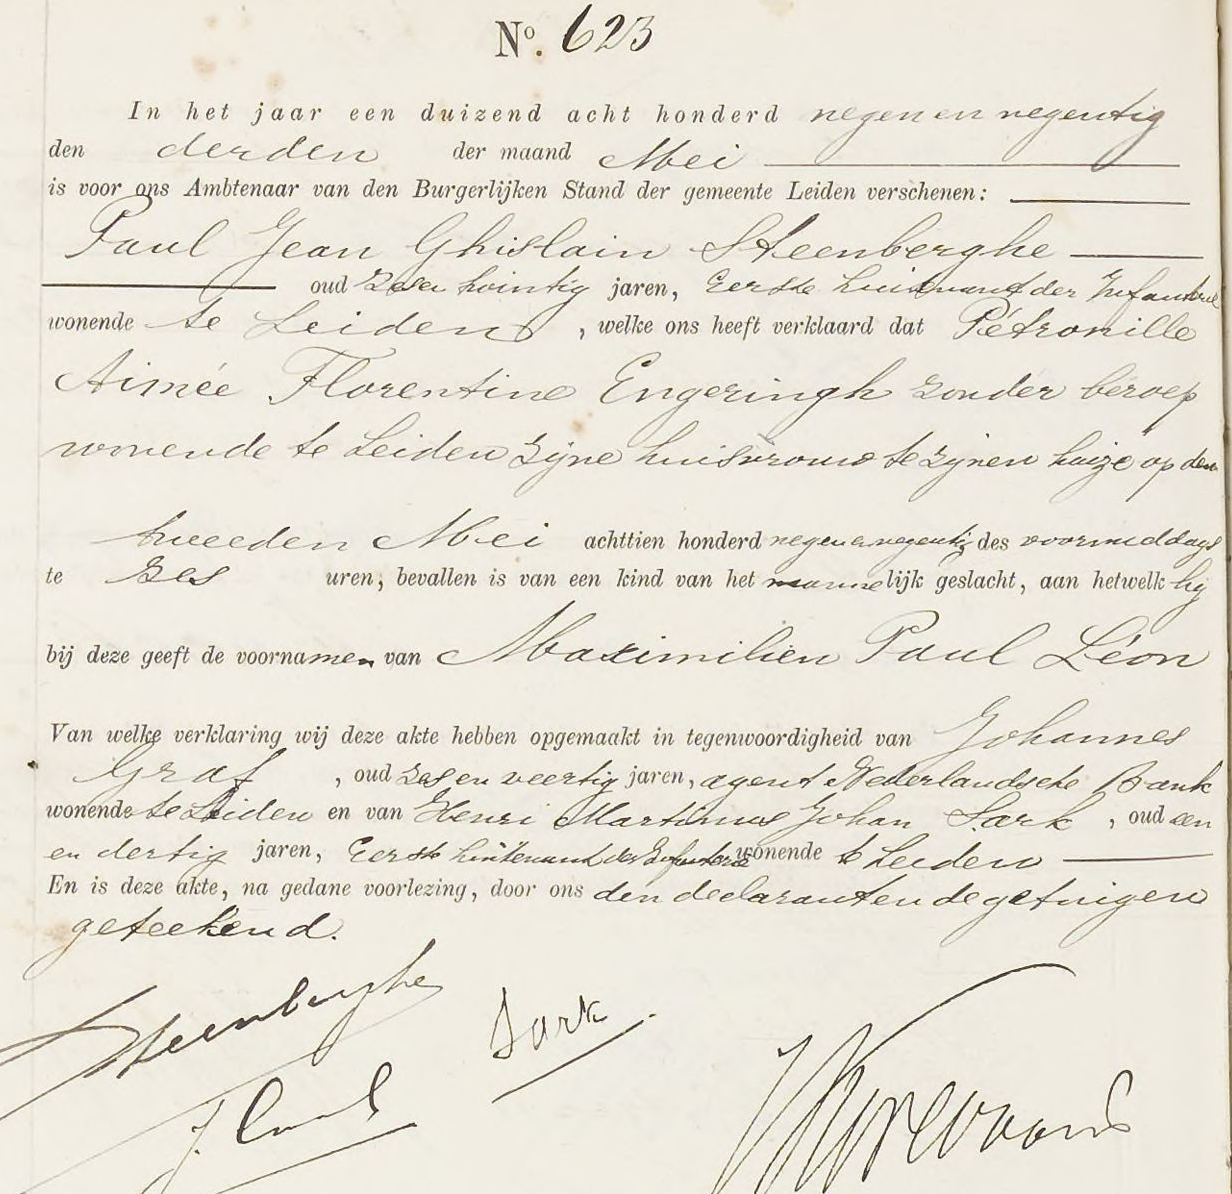 Nº. 623
In het jaar een duizend acht honderd negen en negentig
den derden der maand Mei
is voor ons Ambtenaar van den Burgerlijken Stand der gemeente Leiden verschenen:
Paul Jean Ghislain Steenberghe
oud zes en twintig jaren, Eerste Luitenant der Infanterie
wonende te Leiden, welke ons heeft verklaard dat Pétronille
Aimée Florentine Engeringh zonder beroep
wonende te Leiden zijne huisvrouw te zijnen huize op den
tweeden Mei achttien honderd negen en negentig des voormiddags
te zes uren, bevallen is van een kind van het mannelijk geslacht, aan hetwelk hij
bij deze geeft de voornamen van Maximilien Paul Léon
Van welke verklaring wij deze akte hebben opgemaakt in tegenwoordigheid van Johannes
Graf, oud zes en veertig jaren, agent Nederlandsche Bank
wonende te Leiden en van Henri Martinus Johan Sark, oud een
en dertig jaren, Eerste Luitenant der Infanterie wonende te Leiden
En is deze akte, na gedane voorlezing, door ons den declarant en de getuigen
geteekend.
Steenberghe
Sark